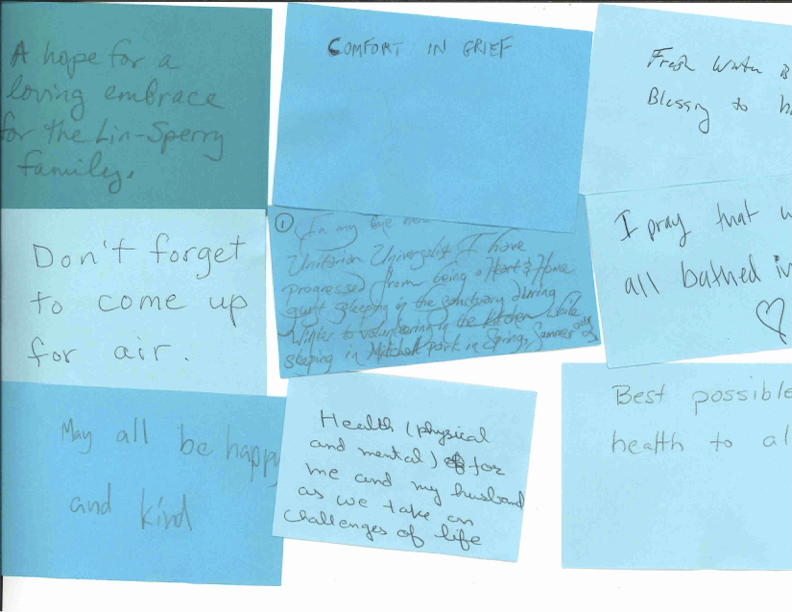 A hope for a
loving embrace
for the Lin-Sperry
family.
COMFORT IN GRIEF
Fresh Water
Blessing to
Don't forget
to come up
for air.
①
In my
Unitarian Universalist I have
progressed from being a Heart & Home
guest sleeping in the sanctuary during
Winter to volunteering in the kitchen while
sleeping in Mitchell park in Spring, Summer
I pray that
all bathed in
♡
May all be happy
and kind
Health (physical
and mental) for
me and my husband
as we take on
challenges of life
Best possible
health to